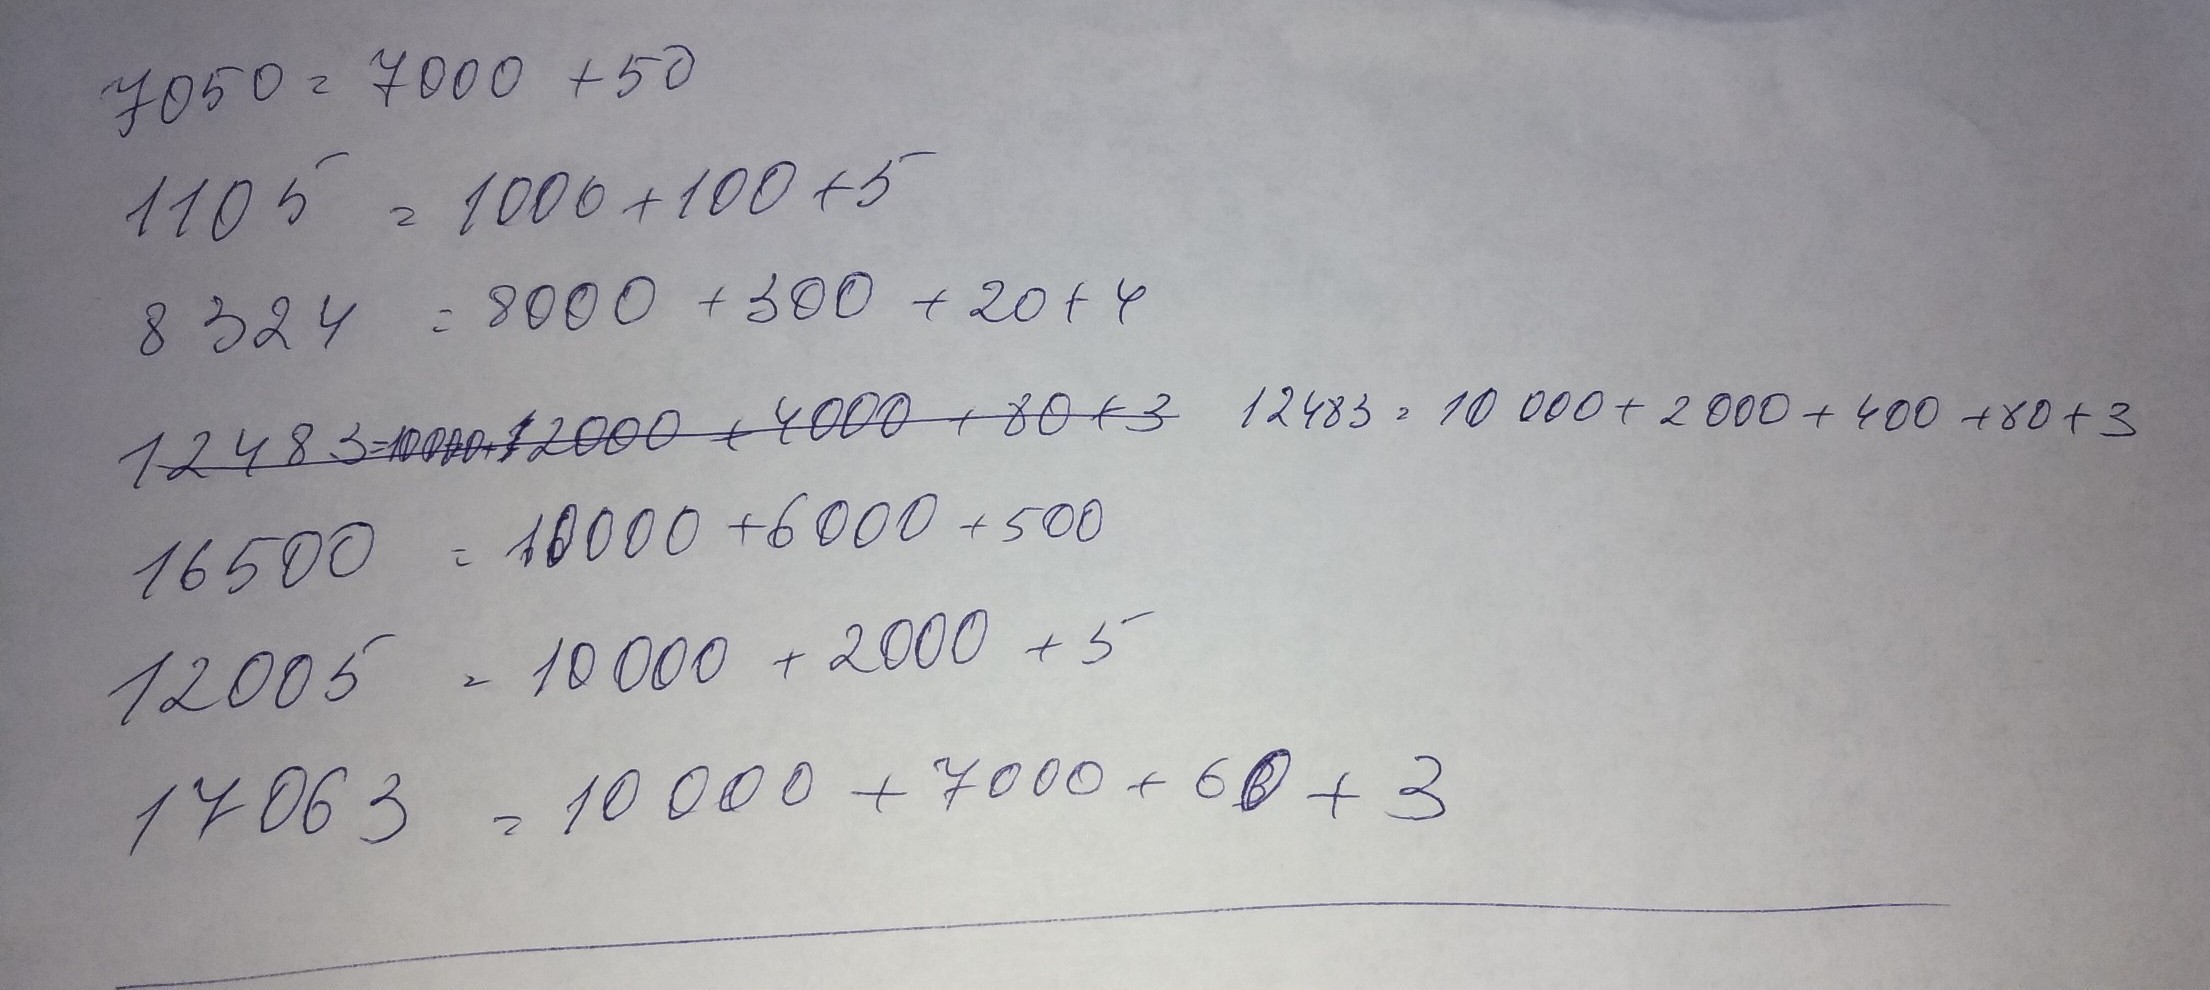 7050 = 7000 + 50
1105 = 1000 + 100 + 5
8324 = 8000 + 300 + 20 + 4
12483 = 10000 + 12000 + 4000 + 80 + 3 12483 = 10 000 + 2 000 + 400 + 80 + 3
16500 = 10000 + 6000 + 500
12005 = 10 000 + 2000 + 5
17063 = 10 000 + 7000 + 60 + 3